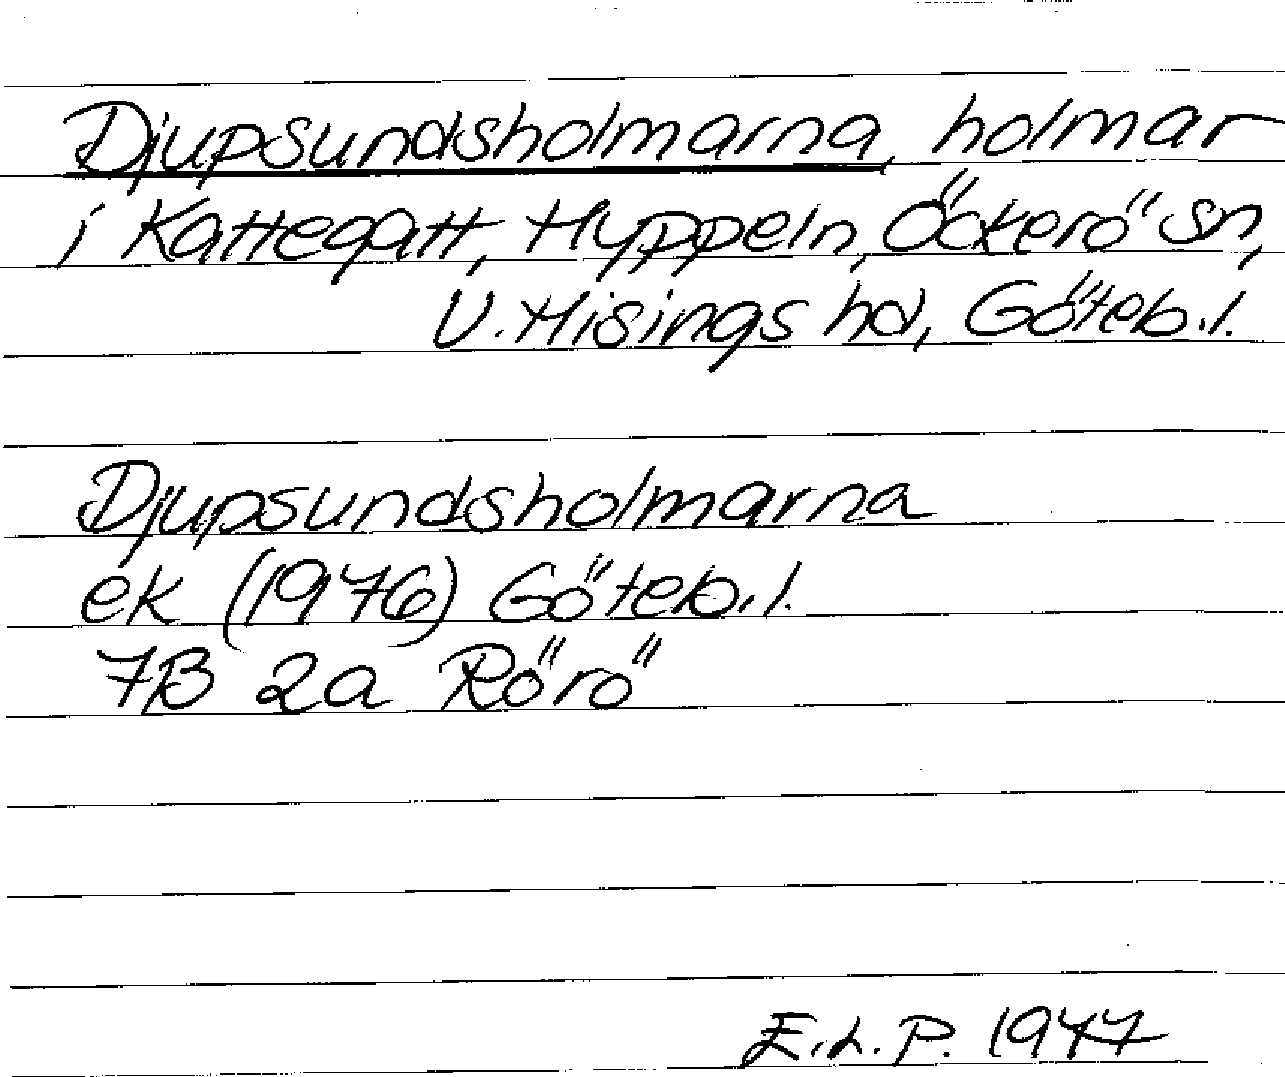 Djupsundsholmarna, holmar
i Kattegatt, Hyppeln, Öckerö sn,
V. Hisings hd, Göteb.l.
Djupsundsholmarna
ek (1976) Göteb.l.
7B 2a Rörö
E.L.P. 1977